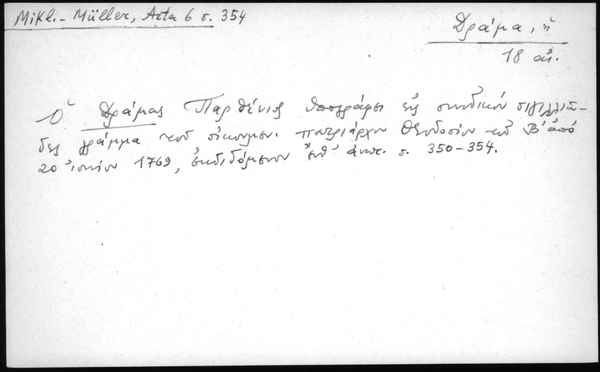 Mikl.- Müller, Acta 6 σ. 354
Δράμα, ἡ
18 αἰ.
Ὁ Δράμας Παρθένιος ὑπογράφει εἰς συνοδικὸν σιγιλλιῶ-
δες γράμμα τοῦ οἰκουμεν. πατριάρχου Θεοδοσίου τοῦ Β' ἀπὸ
20 ἰουνίου 1769, ἐκδιδόμενον ἐνθ' ἀνωτ. σ. 350-354.